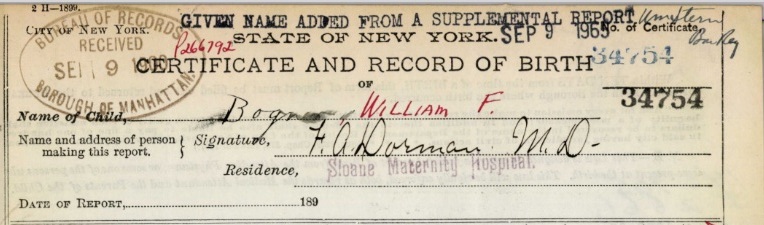 2 II-1899.
GIVEN NAME ADDED FROM A SUPPLEMENTAL REPORT
CITY OF NEW YORK.
STATE OF NEW YORK.
SEP 9 1965
No. of Certificate,
BUREAU OF RECORDS
RECEIVED
SEP 9
BOROUGH OF MANHATTAN.
P266792
CERTIFICATE AND RECORD OF BIRTH
34754
OF
34754
Name of Child, WILLIAM F.
Name and address of person making this report.
Signature, F. A. Dorman M.D-
Residence, Sloane Maternity Hospital.
DATE OF REPORT, 189